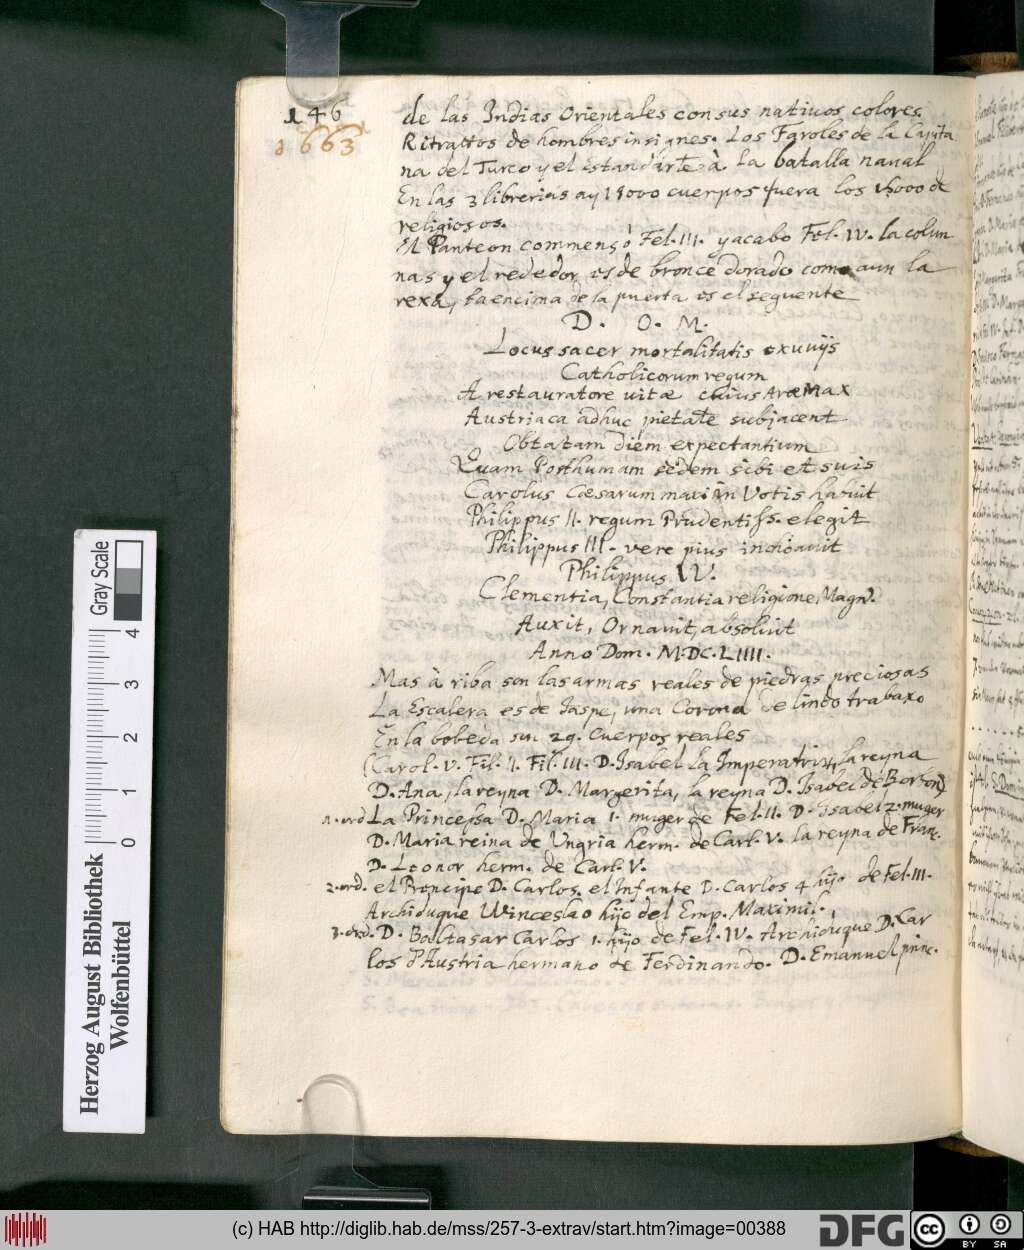 146
1663
de las Indias Orientales con sus nativos colores.
Ritrattos de hombres insignes. Los Faroles de la Capita
na del Turco y el Estandarte à La batalla naval
En las 3 librerias ay 18000 cuerpos fuera los de
religiosos.
El Panteon commensó Fel. III. y acabo Fel. IV. la colum
nas y el rededor es de bronce dorado como aun la
rexa, la encima de la puerta es el seguente
D. O. M.
Locus sacer mortalitatis exuviis
Catholicorum regum
A restauratore vitæ cuius Aræ Max
Austriaca adhuc pietate subjacent
Obtatam diem expectantium
Quam Posthumam sedem sibi et suis
Carolus Cæsarum maxi in Votis habuit
Philippus II. regum Prudentiss. elegit
Philippus III. vere pius inchoavit
Philippus IV.
Clementia, Constantia religione, Magn.
Auxit, Ornavit, absolvit
Anno Dom. MDC.LIIII.
Mas à riba son las armas reales de piedras preciosas
La Escalera es de Jaspe, una Corona de lindo trabaxo
En la bobeda sin 29. Cuerpos reales
(Carol. V. Fil. II. Fil. III. D. Isabel la Imperatrix, la reyna
D. Ana, la reyna D. Margerita, la reyna D. Isabel de Borbon)
1. ord La Princessa D. Maria 1. muger de Fel. II. D. Isabel 2. muger
D. Maria reina de Ungria herm. de Carl. V. la reyna de Franc.
D. Leonor herm. de Carl. V.
2. ord. el Principe D. Carlos, el Infante D. Carlos 4 hijo de Fel. III.
Archiduque Winceslao hijo del Emp. Maximil.
3. ord. D. Baltasar Carlos 1. hijo de Fel. IV. Archiduque D. Car
los d'Austria hermano de Ferdinando. D. Emanuel princ.
Herzog August Bibliothek
Wolfenbüttel
Gray Scale
0 1 2 3 4
(c) HAB http://diglib.hab.de/mss/257-3-extrav/start.htm?image=00388
DFG
cc BY SA